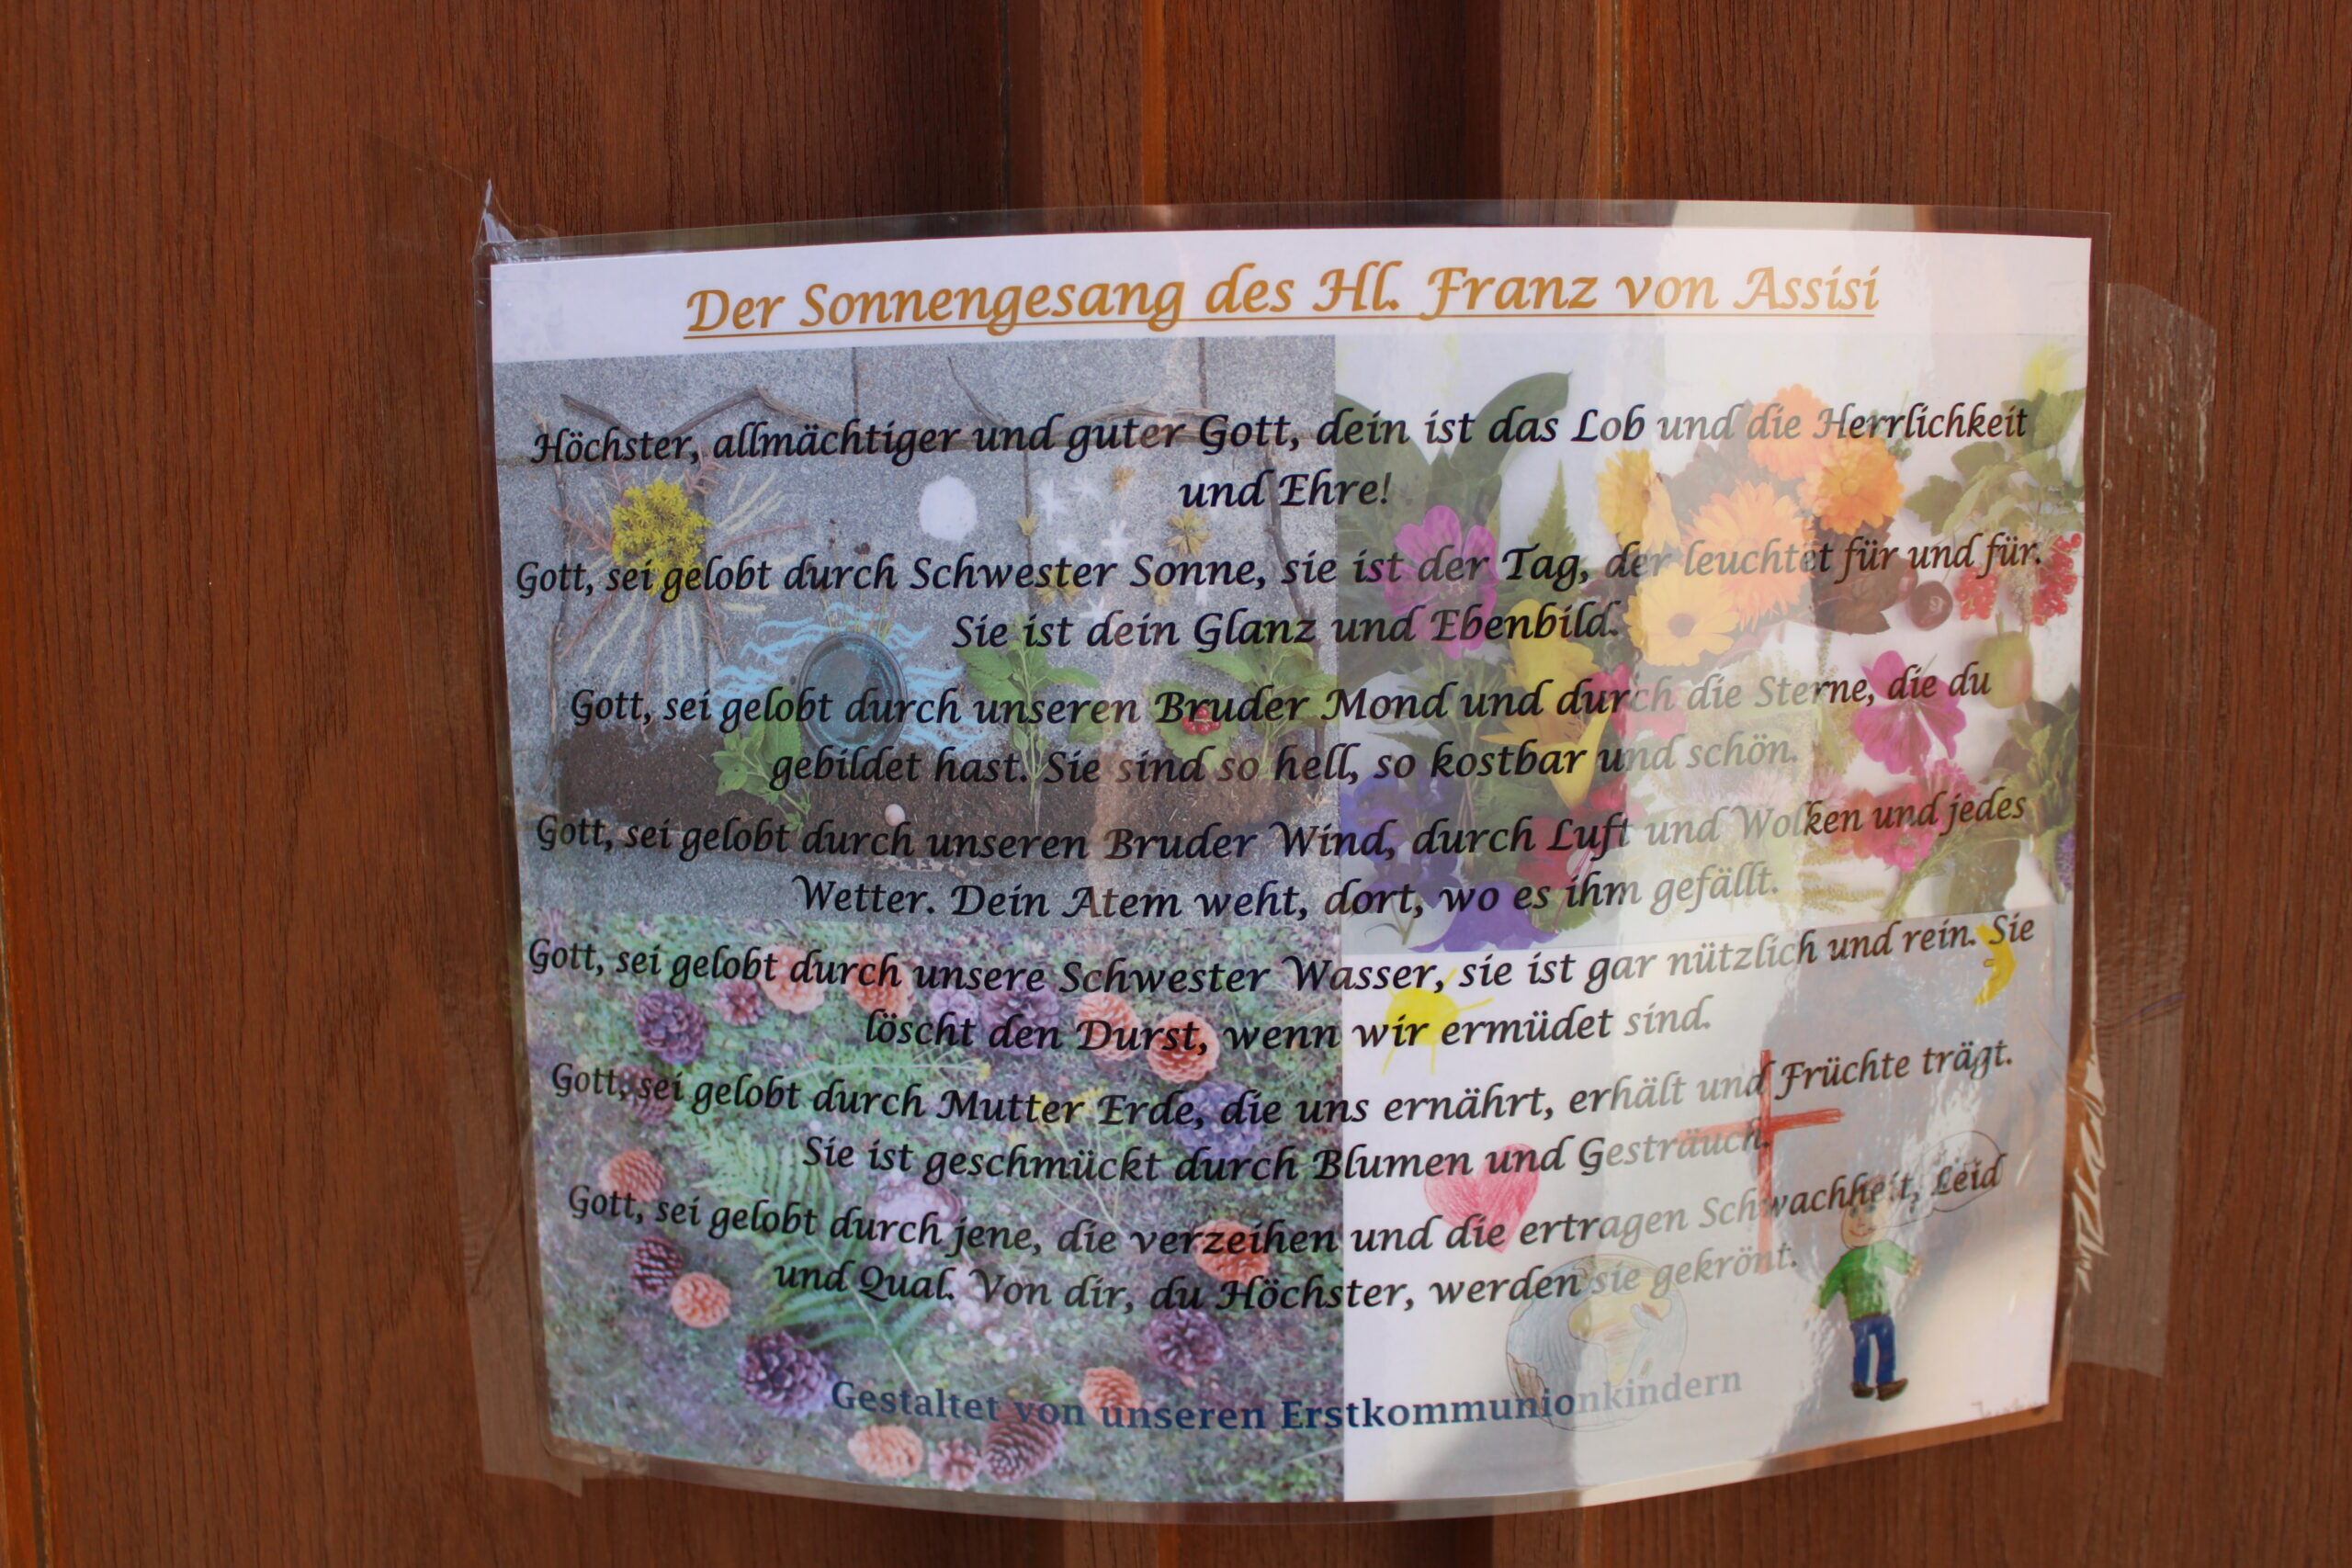 Der Sonnengesang des Hl. Franz von Assisi
Höchster, allmächtiger und guter Gott, dein ist das Lob und die Herrlichkeit
und Ehre!
Gott, sei gelobt durch Schwester Sonne, sie ist der Tag, der leuchtet für und für.
Sie ist dein Glanz und Ebenbild.
Gott, sei gelobt durch unseren Bruder Mond und durch die Sterne, die du
gebildet hast. Sie sind so hell, so kostbar und schön.
Gott, sei gelobt durch unseren Bruder Wind, durch Luft und Wolken und jedes
Wetter. Dein Atem weht, dort, wo es ihm gefällt.
Gott, sei gelobt durch unsere Schwester Wasser, sie ist gar nützlich und rein. Sie
löscht den Durst, wenn wir ermüdet sind.
Gott, sei gelobt durch Mutter Erde, die uns ernährt, erhält und Früchte trägt.
Sie ist geschmückt durch Blumen und Gesträuch.
Gott, sei gelobt durch jene, die verzeihen und die ertragen Schwachheit, Leid
und Qual. Von dir, du Höchster, werden sie gekrönt.
Gestaltet von unseren Erstkommunionkindern